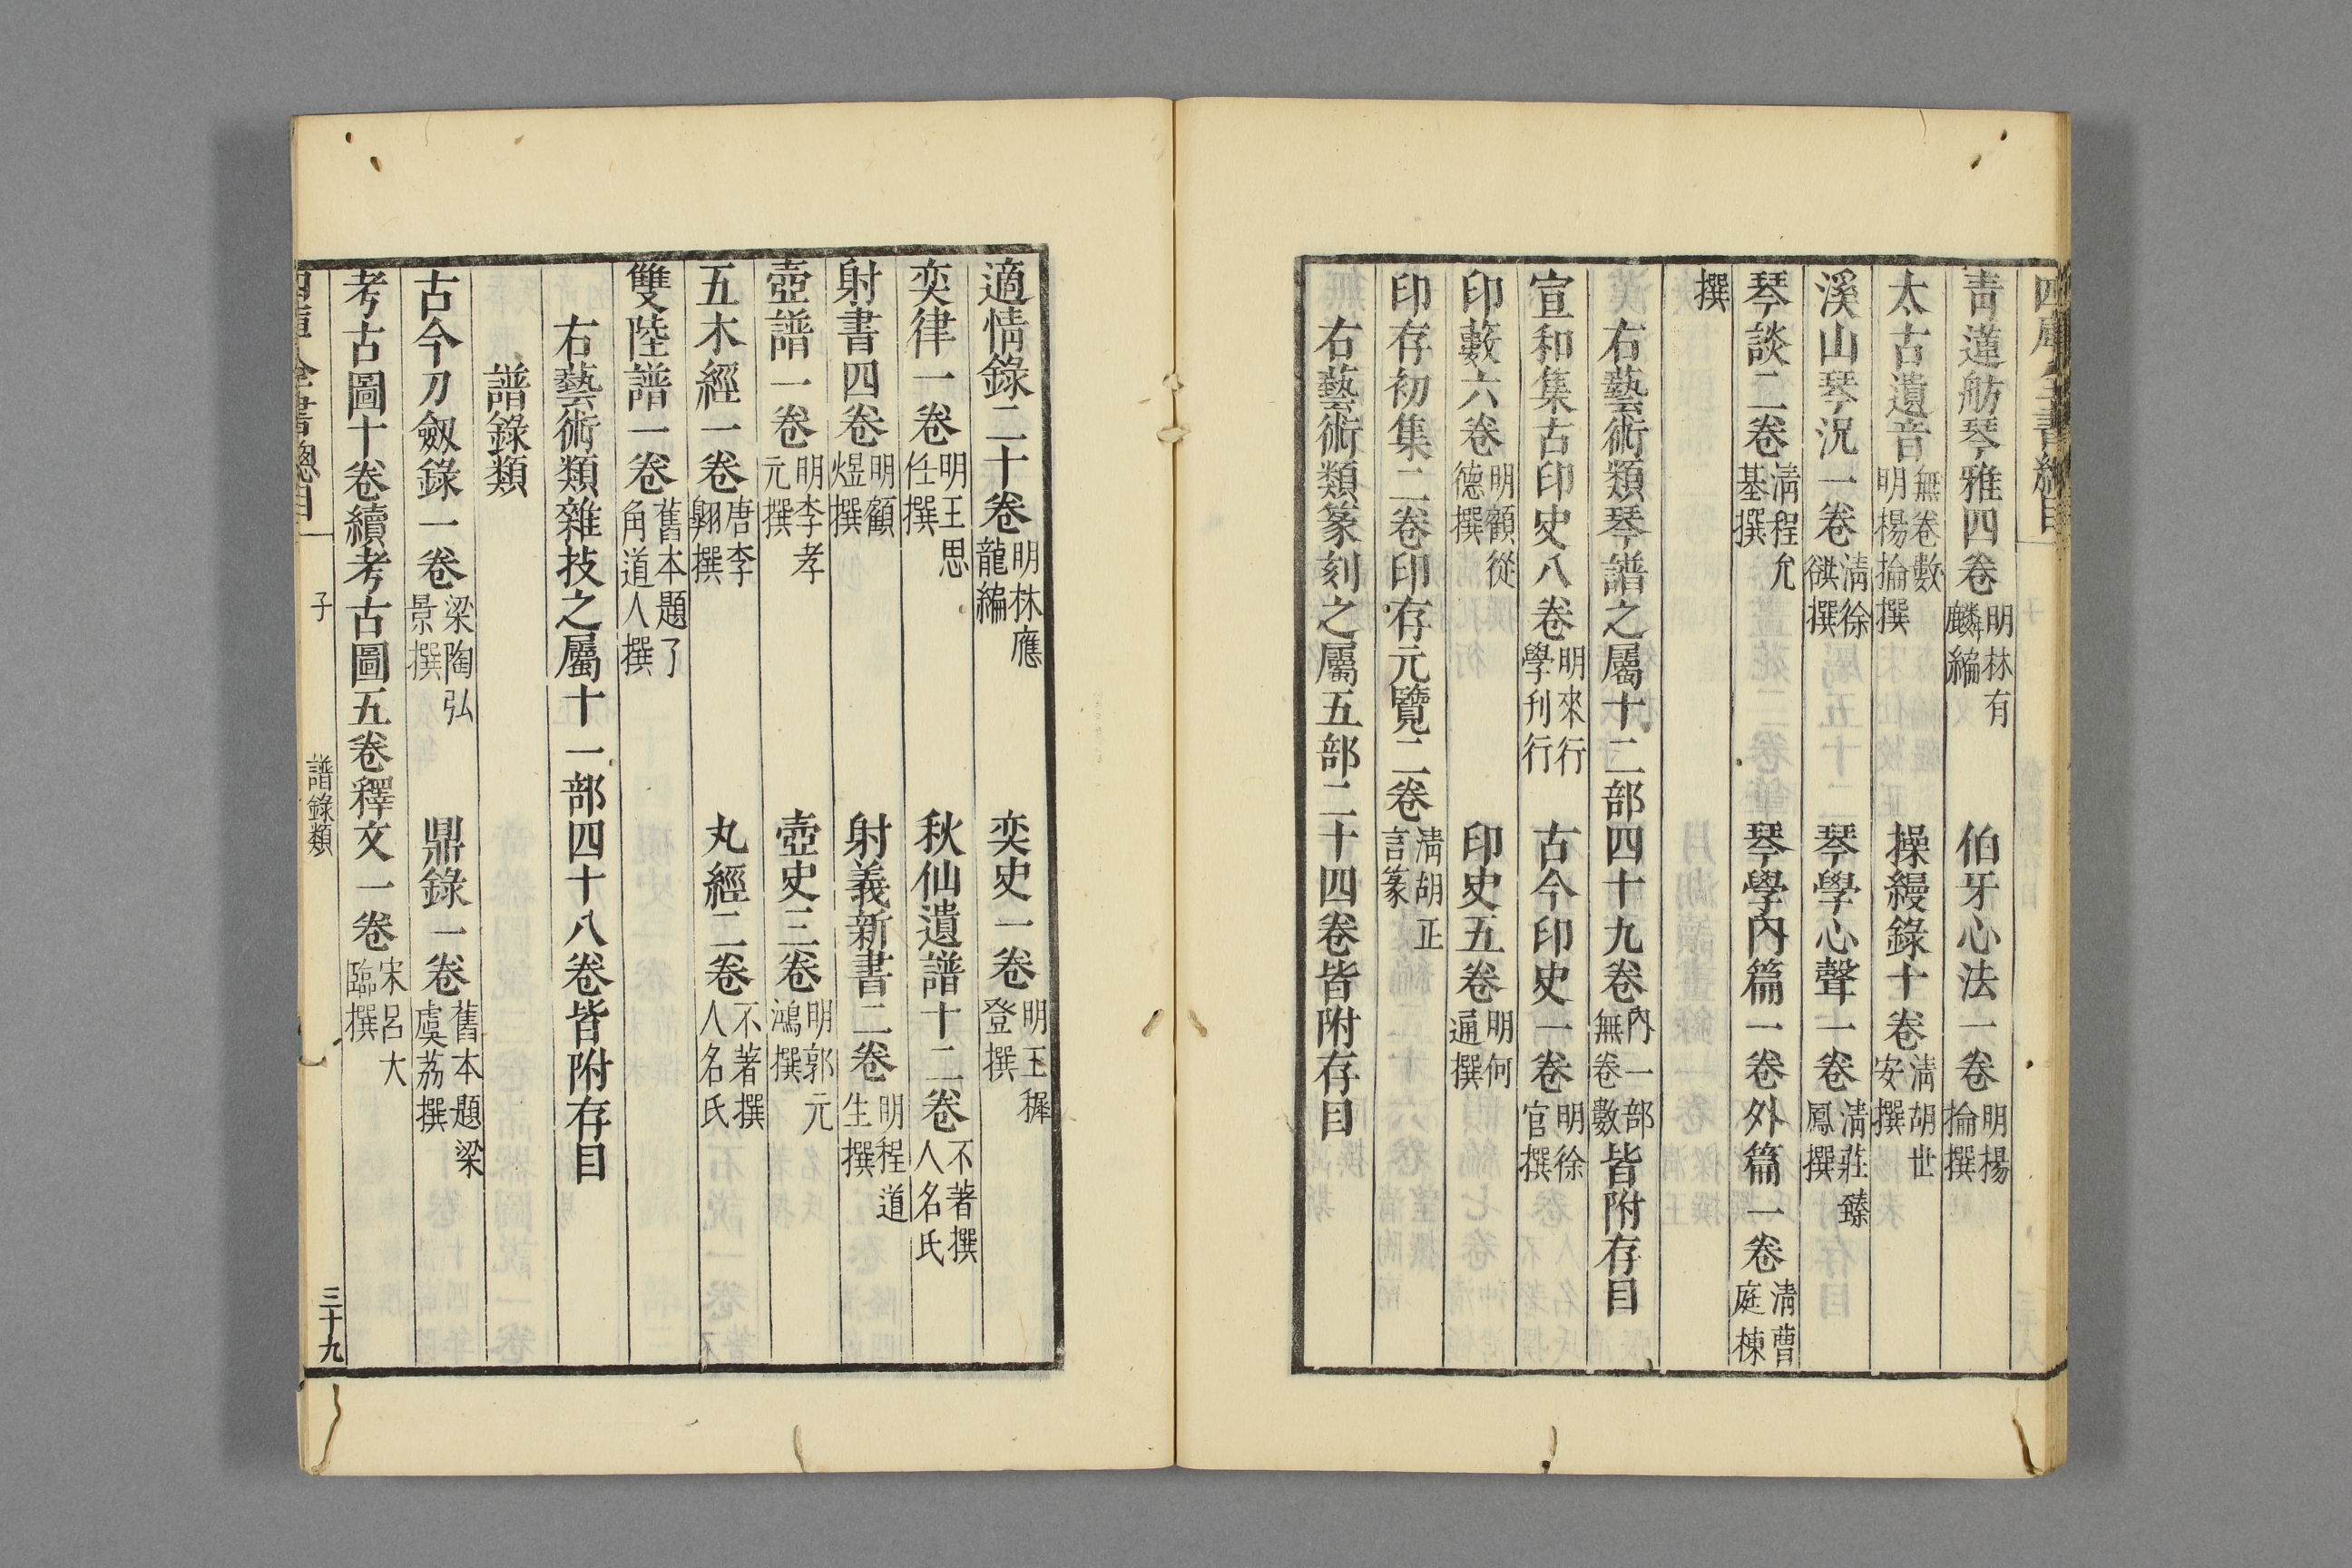 四庫全書總目
靑蓮舫琴雅四卷 明林有麟編 伯牙心法一卷 明楊掄撰
太古遺音 無卷數明楊掄撰 操縵錄十卷 淸胡世安撰
溪山琴況一卷 淸徐𧙓撰 琴學心聲一卷 淸莊臻鳳撰
琴談二卷 淸程允基撰 琴學內篇一卷外篇一卷 淸曹庭棟
撰
右藝術類琴譜之屬十二部四十九卷 內一部無卷數 皆附存目
宣和集古印史八卷 明來行學刊行 古今印史一卷 明徐官撰
印藪六卷 明顧從德撰 印史五卷 明何通撰
印存初集二卷印存元覽二卷 淸胡正言篆
右藝術類篆刻之屬五部二十四卷皆附存目
適情錄二十卷 明林應龍編 奕史一卷 明王穉登撰
奕律一卷 明王思任撰 秋仙遺譜十二卷 不著撰人名氏
射書四卷 明顧煜撰 射義新書二卷 明程道生撰
壺譜一卷 明李孝元撰 壺史三卷 明郭元鴻撰
五木經一卷 唐李翺撰 丸經二卷 不著撰人名氏
雙陸譜一卷 舊本題了角道人撰
右藝術類雜技之屬十一部四十八卷皆附存目
譜錄類
古今刀劔錄一卷 梁陶弘景撰 鼎錄一卷 舊本題梁虞荔撰
考古圖十卷續考古圖五卷釋文一卷 宋呂大臨撰
四庫全書總目 子 譜錄類 三十九